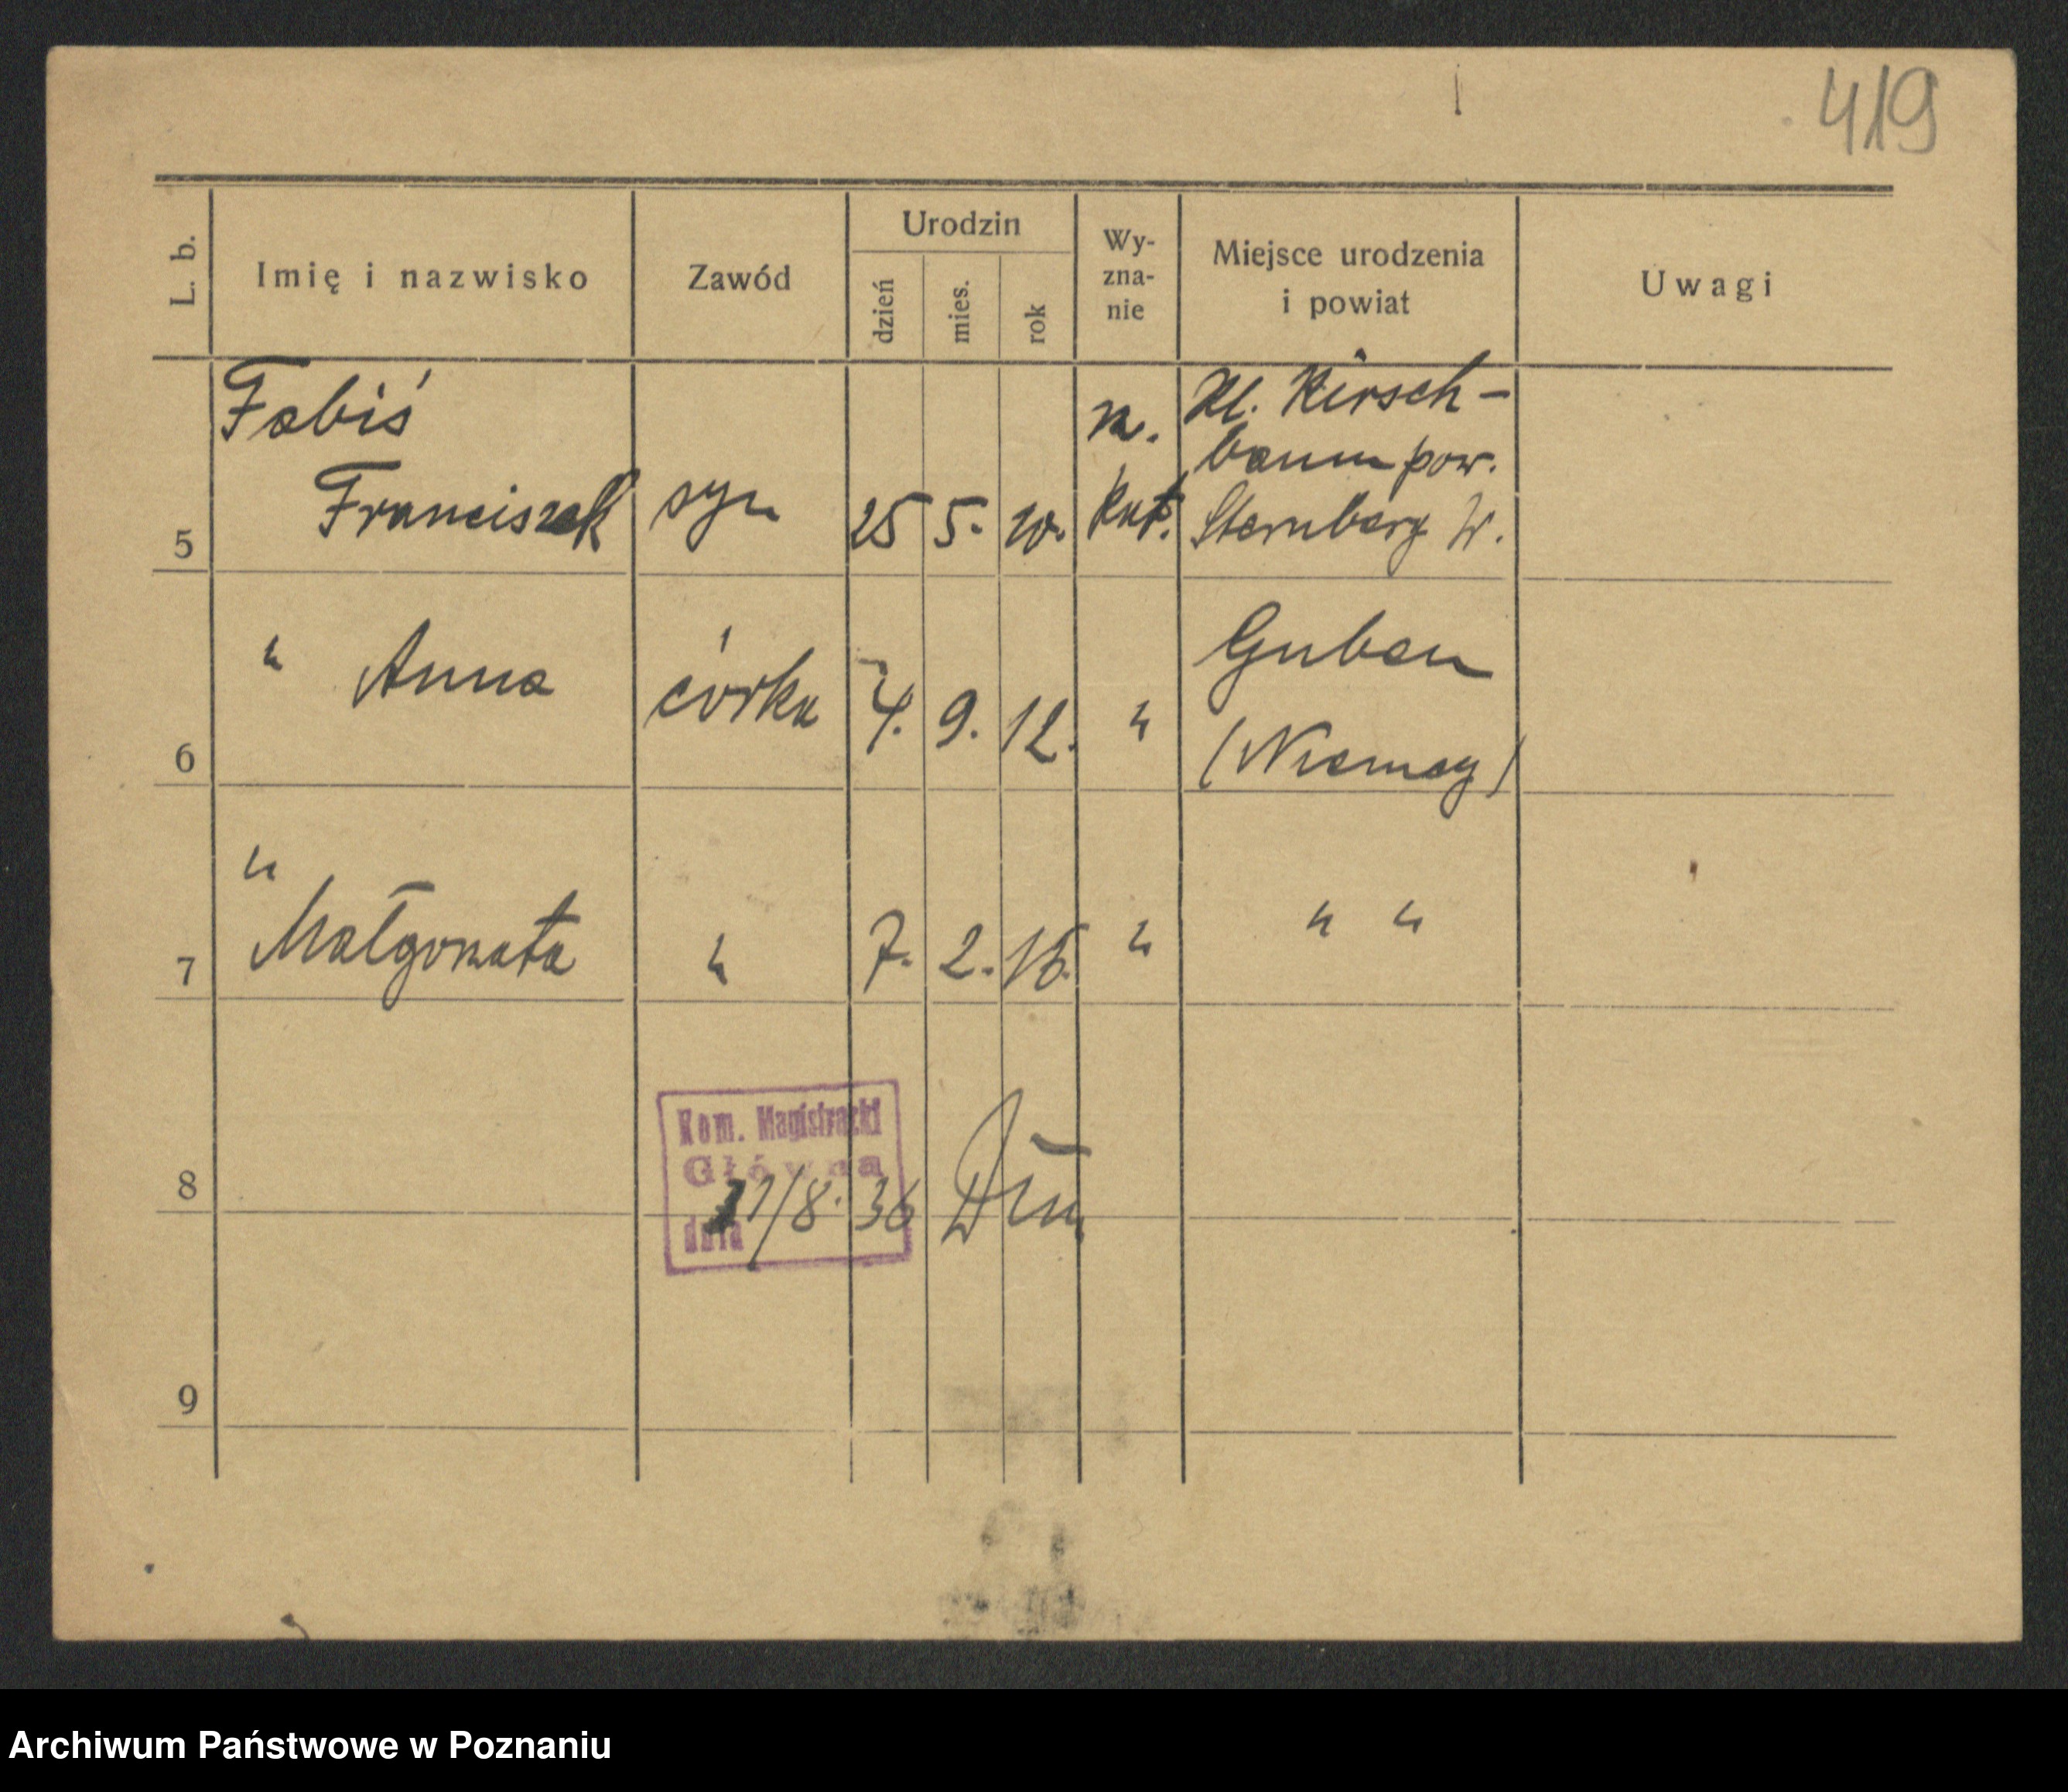 419
L. b.
Imię i nazwisko
Zawód
Urodzin
dzień
mies.
rok
Wy-
zna-
nie
Miejsce urodzenia
i powiat
Uwagi
Fabiś
Franciszek
5
syn
25 5. 10.
rz.
kat.
Kl. Kirsch-
baum pow.
Sternberg
6
" Anna
córka
4. 9. 12.
"
Guben
(Niemcy)
7
"
Małgorzata
"
7. 2. 15.
"
" "
8
Kom. Magistracki
Główna
dnia
/8. 36
9
Archiwum Państwowe w Poznaniu